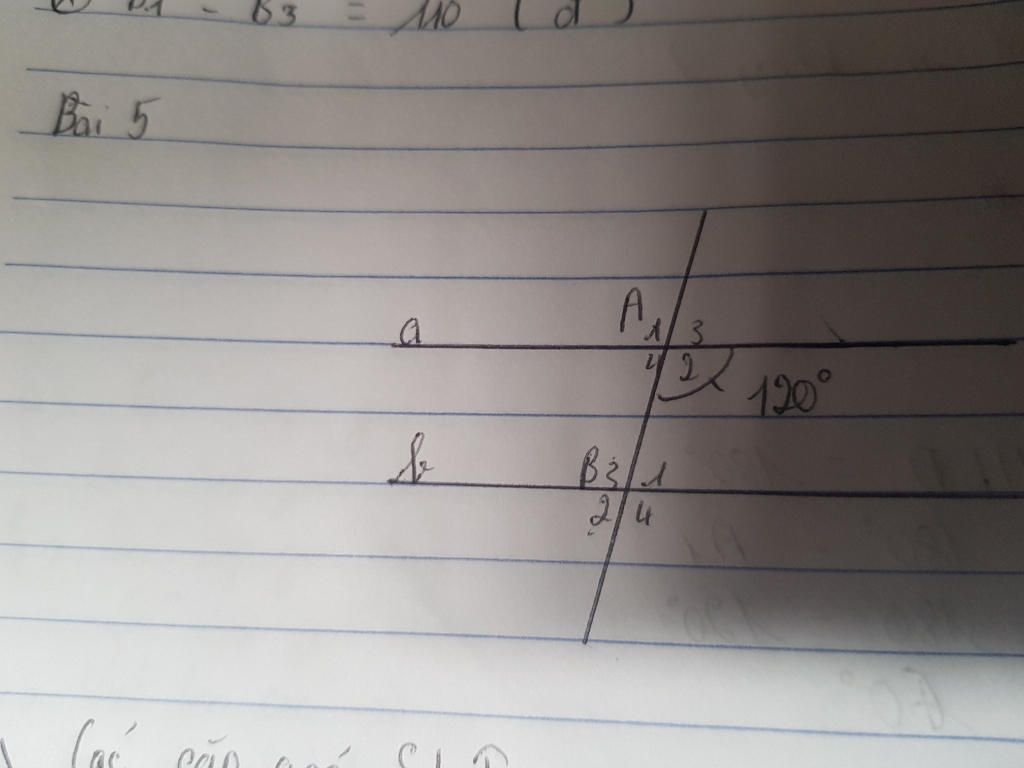 B1 = B3 = 110 ( đ )
Bài 5
a
A 1 3
4 2
120°
b
B 3 1
2 4
Các cặp góc SLT